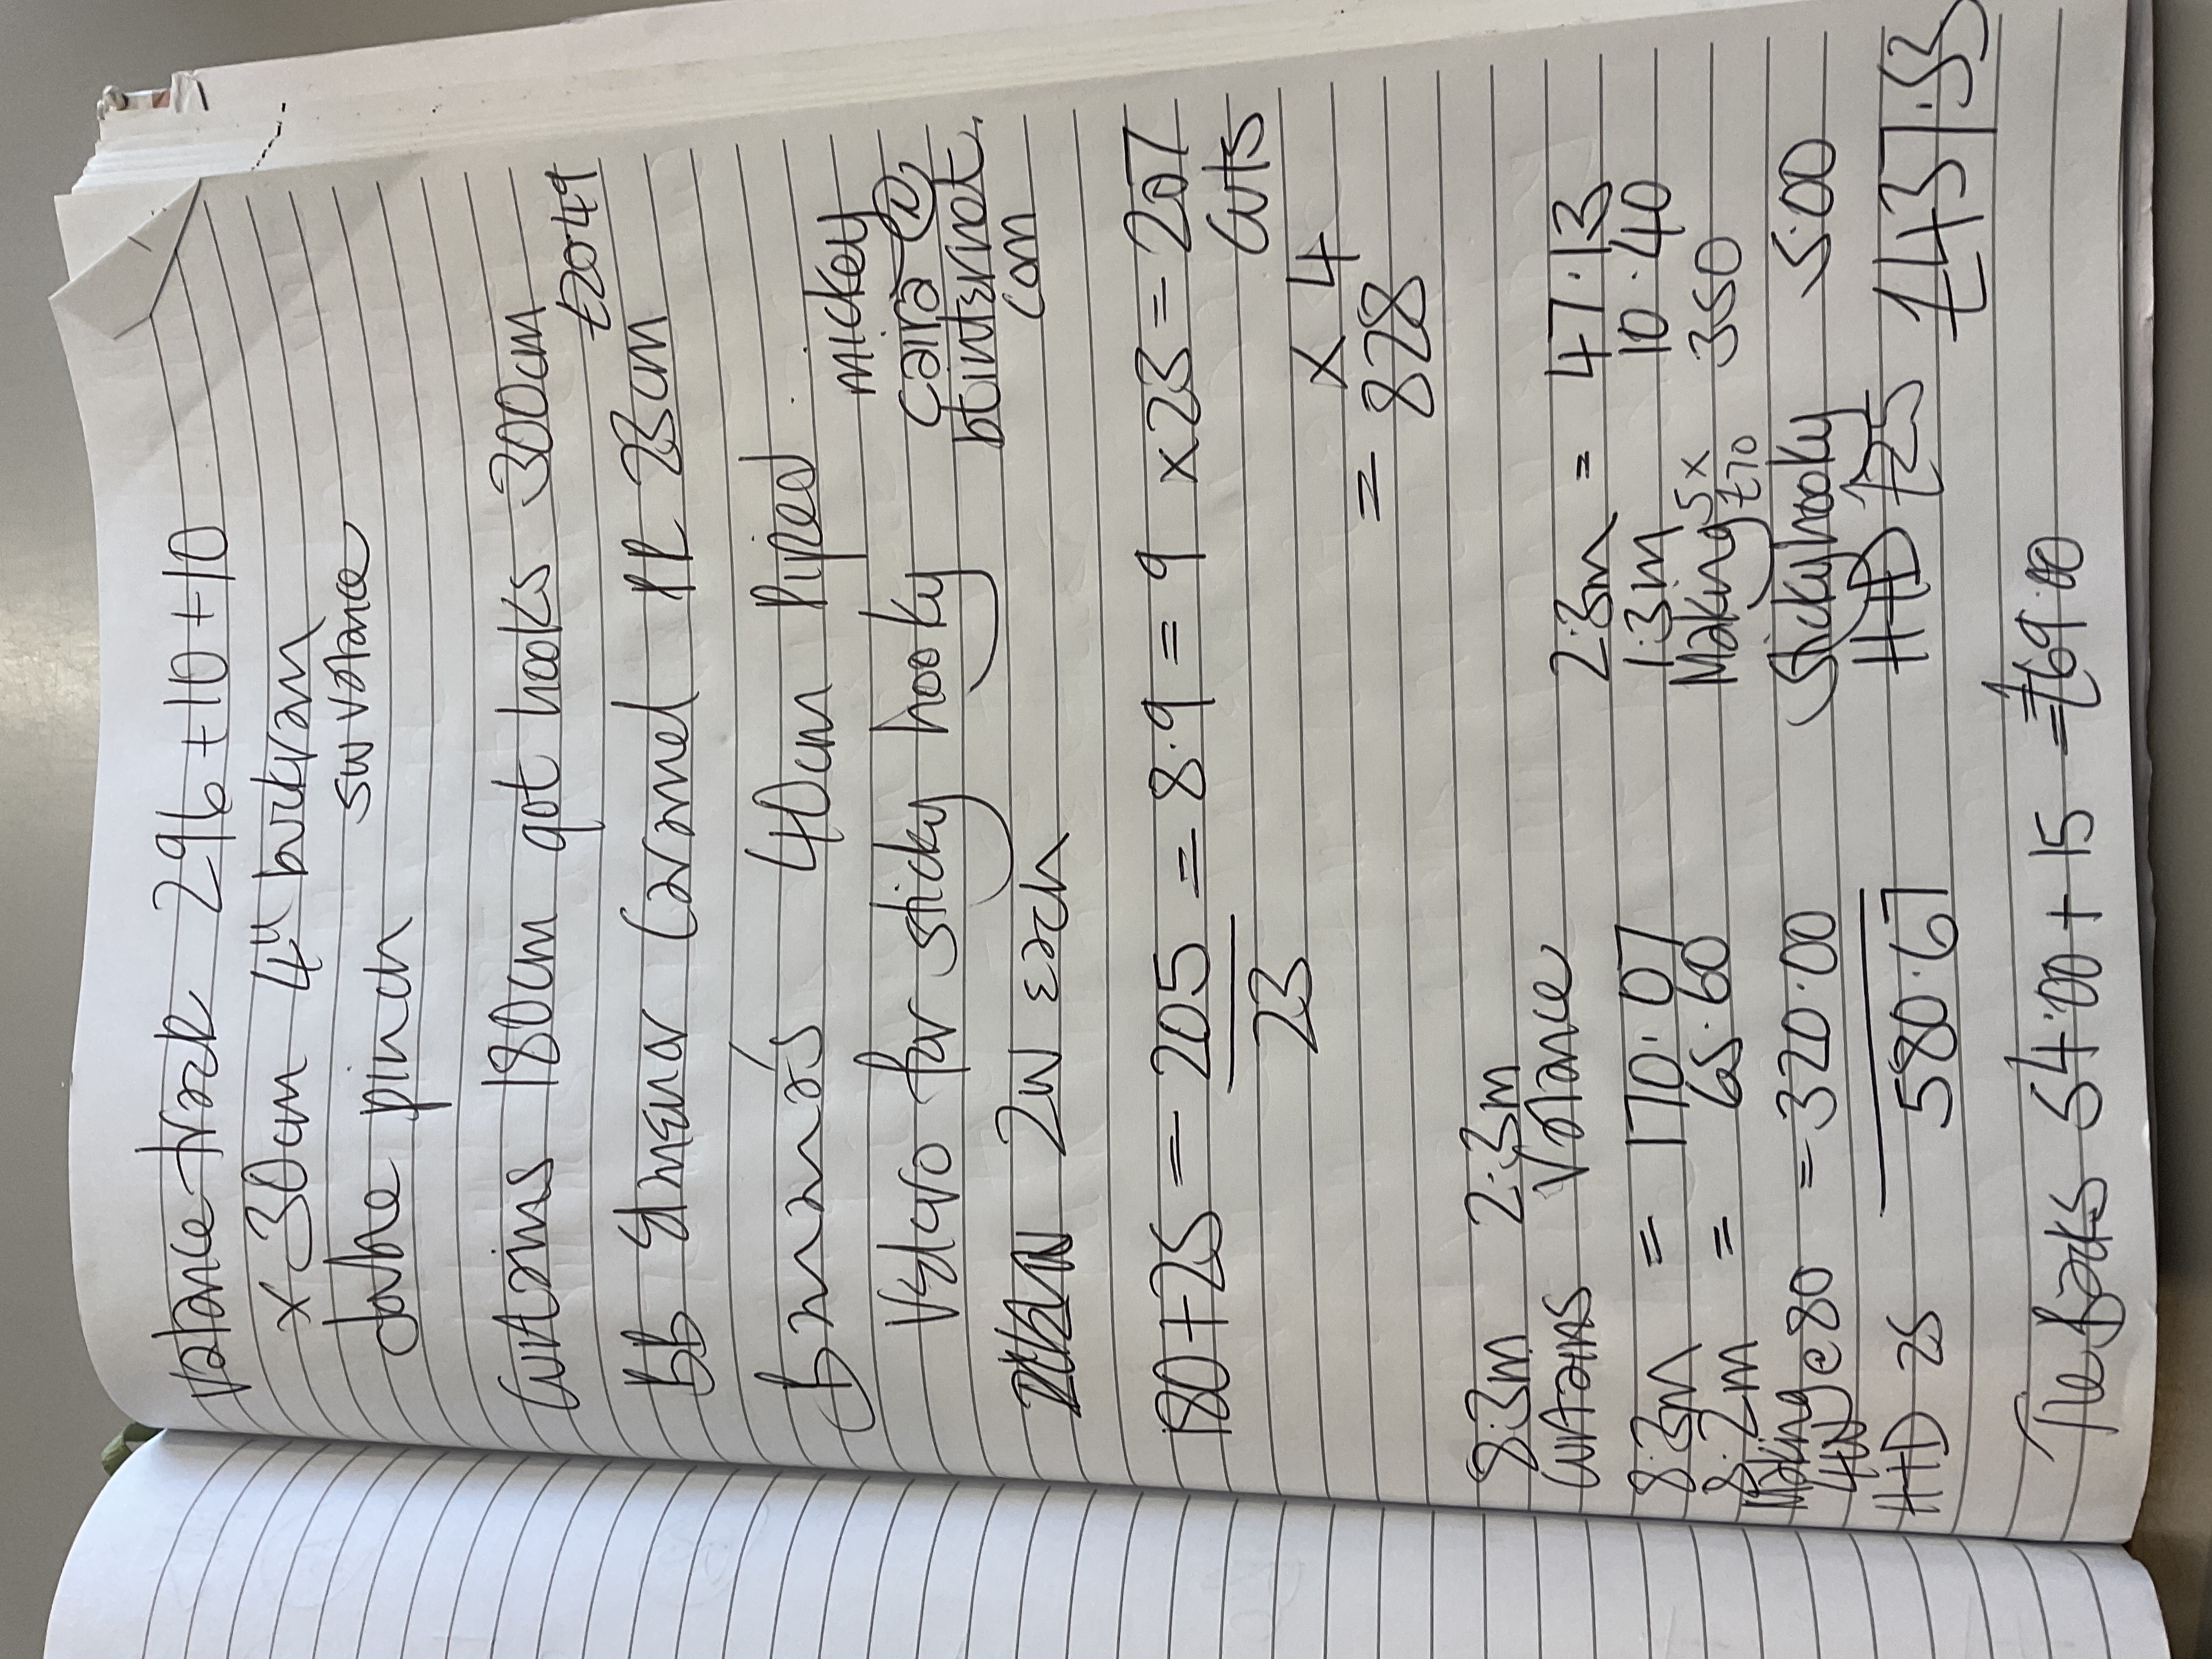 Valance track 296 + 10 + 10
x 30cm 4" bukram
double pinch SW valance
Curtains 180cm got hooks 300cm
£20.49
BB Carmel PR 23cm
40cm Piped.
Velcro for sticky hooky
mickey
cara @
btinternet.
com
2W each
180 + 25 = 205 = 8.9 = 9 x 23 = 207
23
cuts
x 4
= 828
8.3m 2.3m
curtains valance
8.3m = 170.07
8.2m = 65.60
Making @ 80 = 320.00
4W
HD 25 580.67
2.3m = 47.13
1.3m 10.40
Making 5 x £70 350
Sticky hooky 5.00
HD £25 £437.53
Tie backs 54.00 + 15 = £69.00